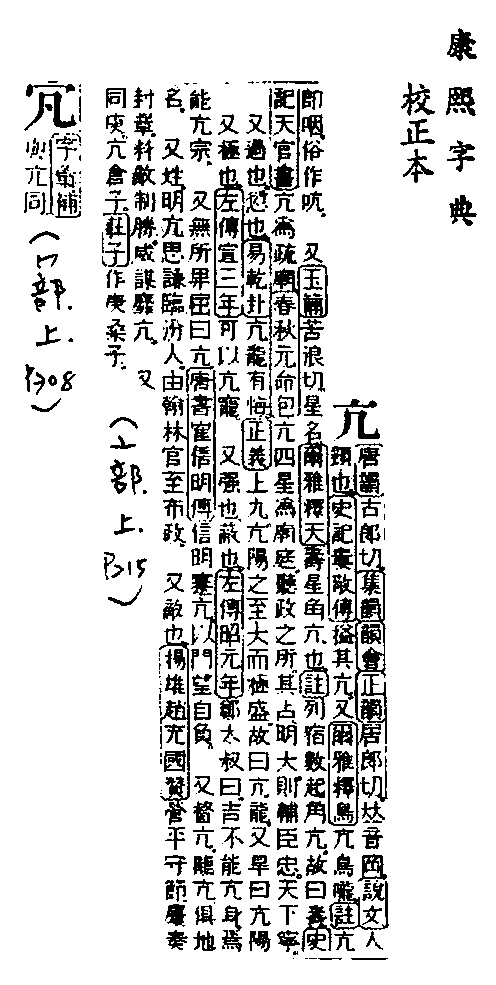 康熙字典
校正本
亢
唐韻古郎切集韻韻會正韻居郎切𠀤音岡說文人
頸也史記婁敬傳搤其亢又爾雅釋鳥亢鳥嚨註亢
卽咽俗作吭 又玉篇苦浪切星名爾雅釋天壽星角亢也註列宿數起角亢故曰壽史
記天官書亢爲疏廟春秋元命包亢四星爲廟庭聽政之所其占明大則輔臣忠天下寧
又過也愆也易乾卦亢龍有悔正義上九亢陽之至大而極盛故曰亢龍又旱曰亢陽
又極也左傳宣三年可以亢寵 又强也蔽也左傳昭元年鄭太叔曰吉不能亢身焉
能亢宗 又無所卑屈曰亢唐書崔信明傳信明蹇亢以門望自負 又督亢龍亢俱地
名 又姓明亢思謙臨汾人由翰林官至布政 又敵也揚雄趙充國贊營平守節屢奏
封章料敵制勝威謀靡亢 又
同庚亢倉子莊子作庚桑子
(亠部.上.P315)
冗
字彙補
與亢同
(冖部.上.P308)